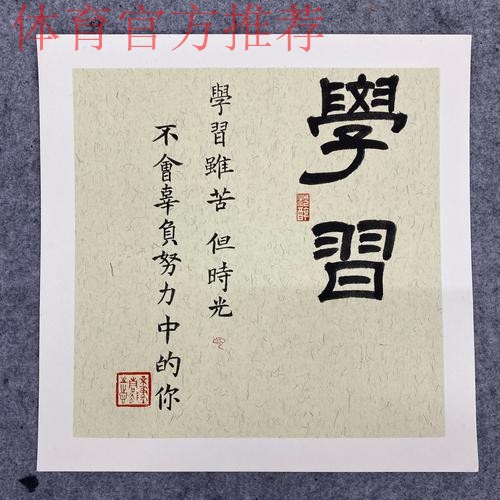 体育官方推荐
學習
學習雖苦 但時光
不會辜負努力中的你